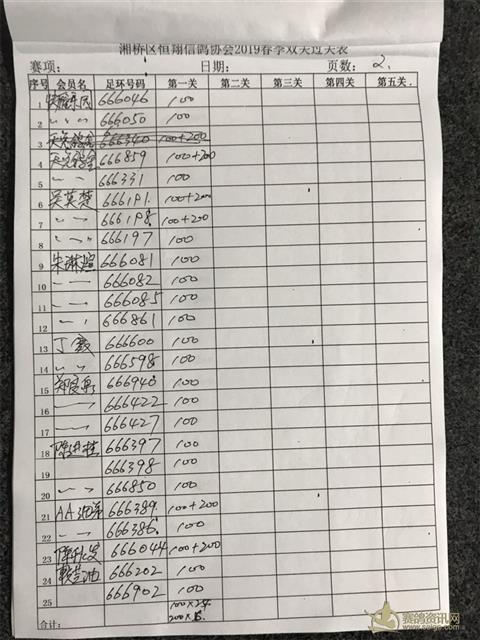 湘桥区恒翔信鸽协会2019春季双关过关表
赛项: 日期: 页数: 2.
序号 会员名 足环号码 第一关 第二关 第三关 第四关 第五关
1 666046 100
2 〃 〃 666050 100
3 天安鸽舍 666340 100+200
4 天安鸽舍 666859 100+200
5 〃 〃 666331 100
6 吴英楚 666191 100+200
7 〃 〃 666198 100+200
8 〃 〃 666197 100
9 朱淋煌 666081 100
10 〃 〃 666082 100
11 〃 〃 666085 100
12 〃 〃 666861 100
13 丁 666600 100
14 〃 〃 666598 100
15 郑 666940 100
16 〃 〃 666422 100
17 〃 〃 666427 100
18 陈进桂 666397 100
19 666398 100
20 〃 〃 666850 100
21 AA 666389 100+200
22 〃 〃 666386 100
23 666044 100+200
24 666202 100
25 666902 100
合计: 100×24
200×6
赛鸽资讯网